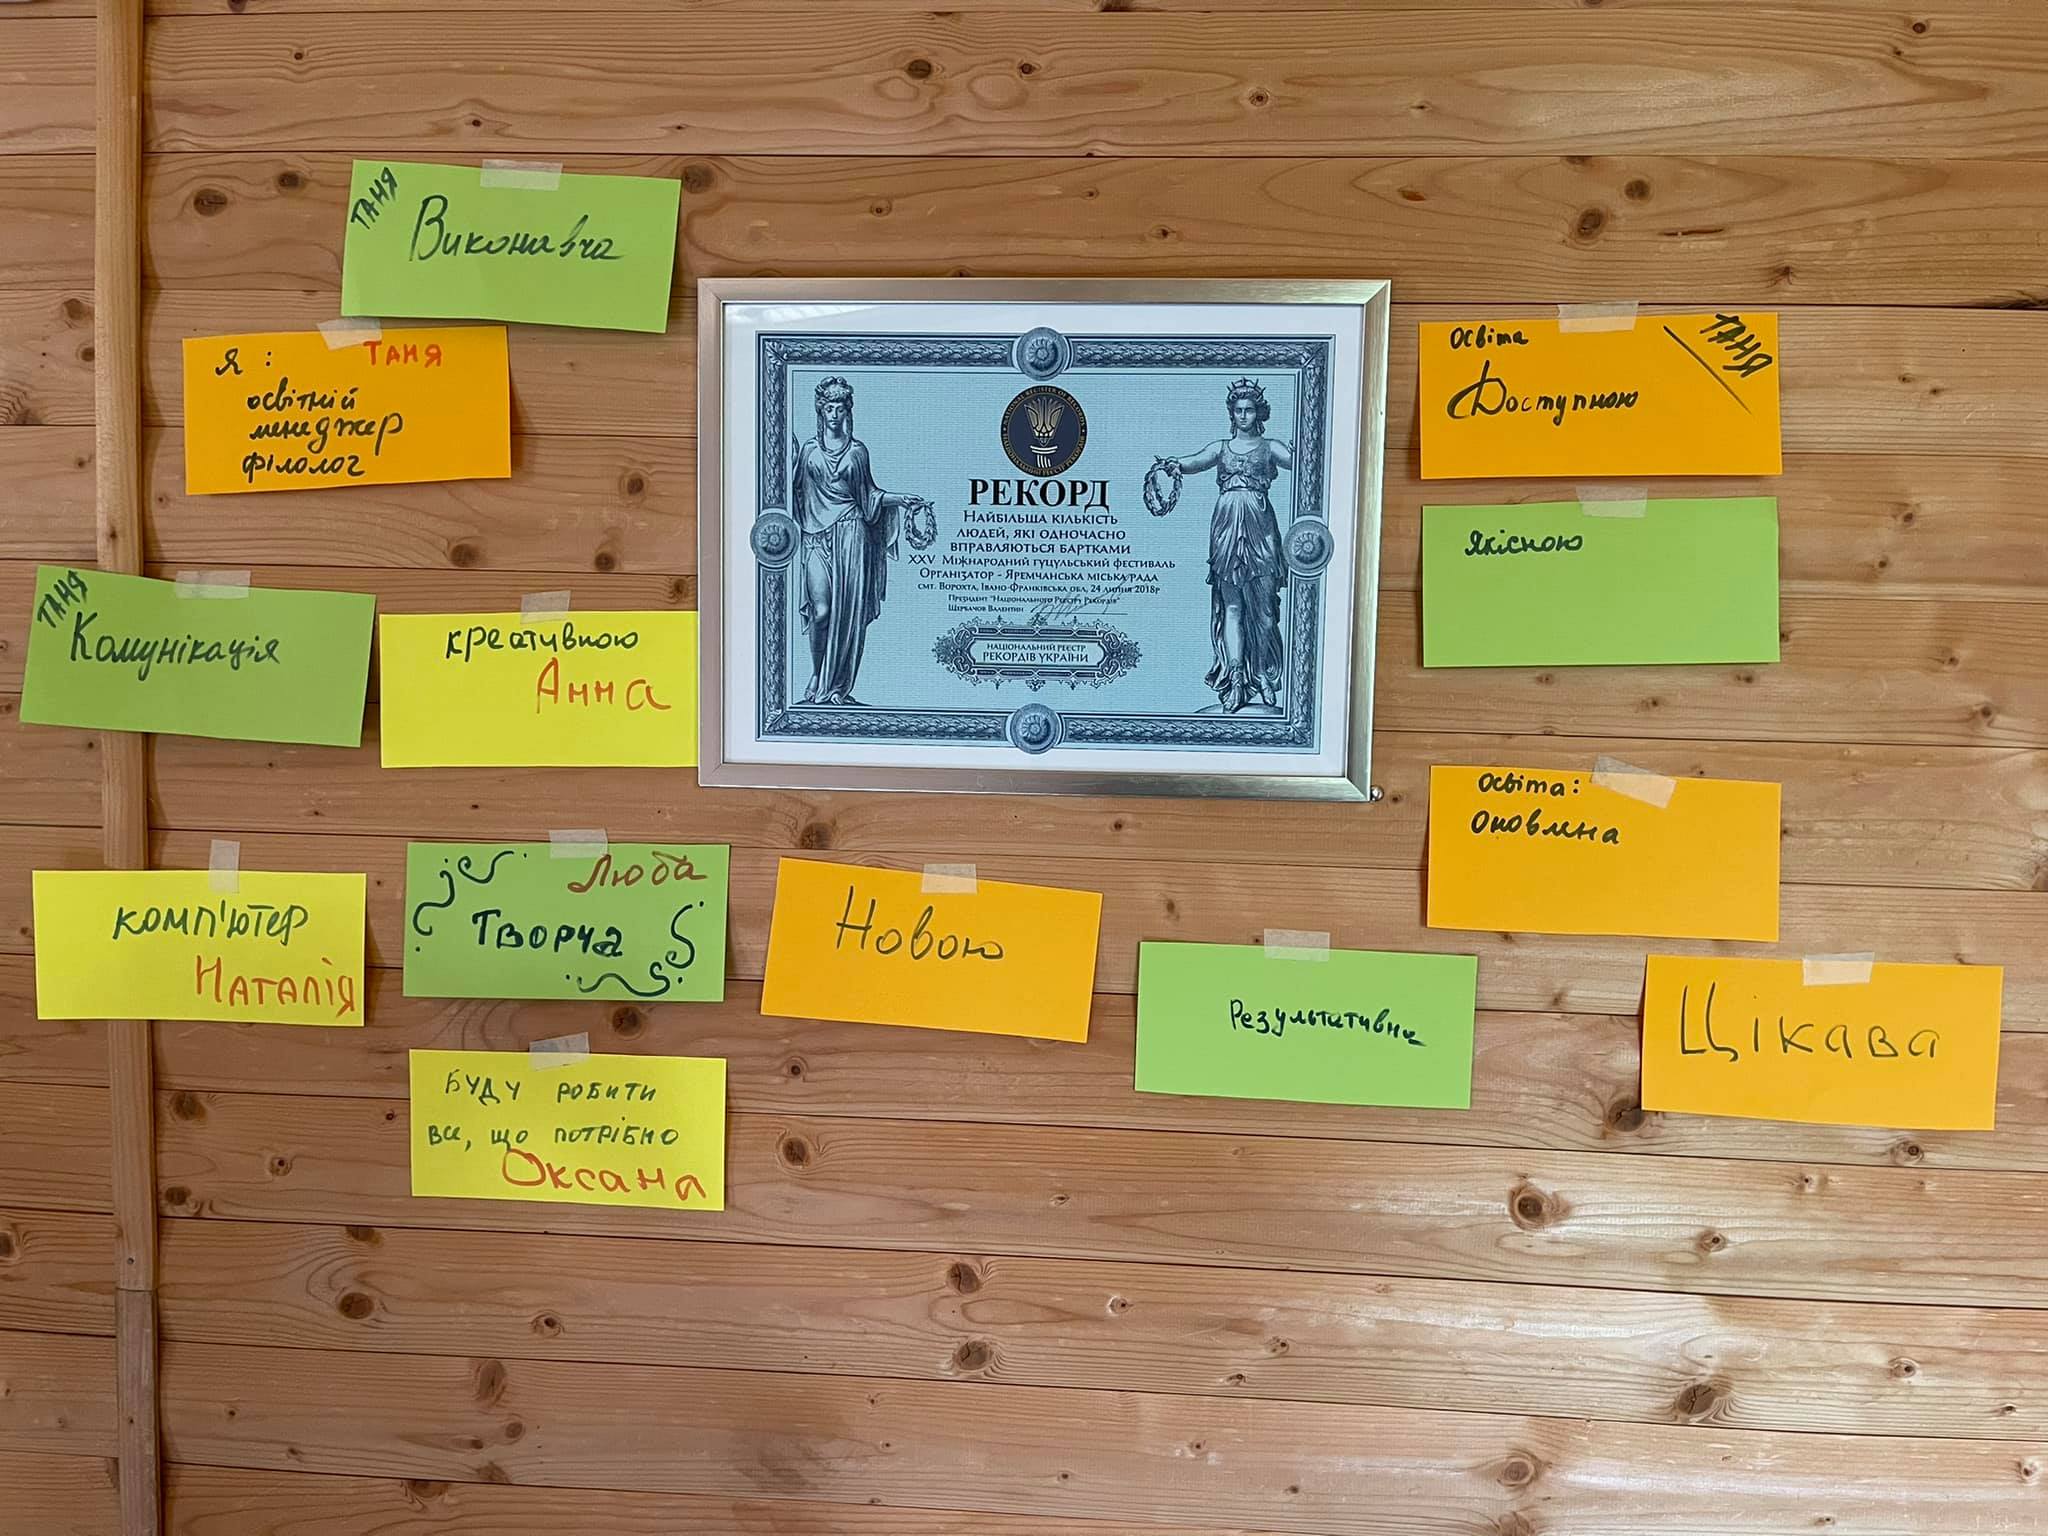 ТАНЯ
Виконавча
Я : ТАНЯ
освітній
менеджер
філолог
ТАНЯ
Комунікація
креативною
Анна
комп'ютер
Наталія
Люба
Творча
Буду робити
все, що потрібно
Оксана
NATIONAL REGISTER OF RECORDS
НАЦІОНАЛЬНИЙ РЕЄСТР РЕКОРДІВ
РЕКОРД
Найбільша кількість
людей, які одночасно
вправляються бартками
XXV Міжнародний гуцульський фестиваль
Організатор - Яремчанська міська рада
смт. Ворохта, Івано-Франківська обл, 24 липня 2018р
Президент "Національного Реєстру Рекордів"
Щербачов Валентин
НАЦІОНАЛЬНИЙ РЕЄСТР
РЕКОРДІВ УКРАЇНИ
Новою
Результативна
освіта
ТАНЯ
Доступною
якісною
освіта:
оновлена
Цікава